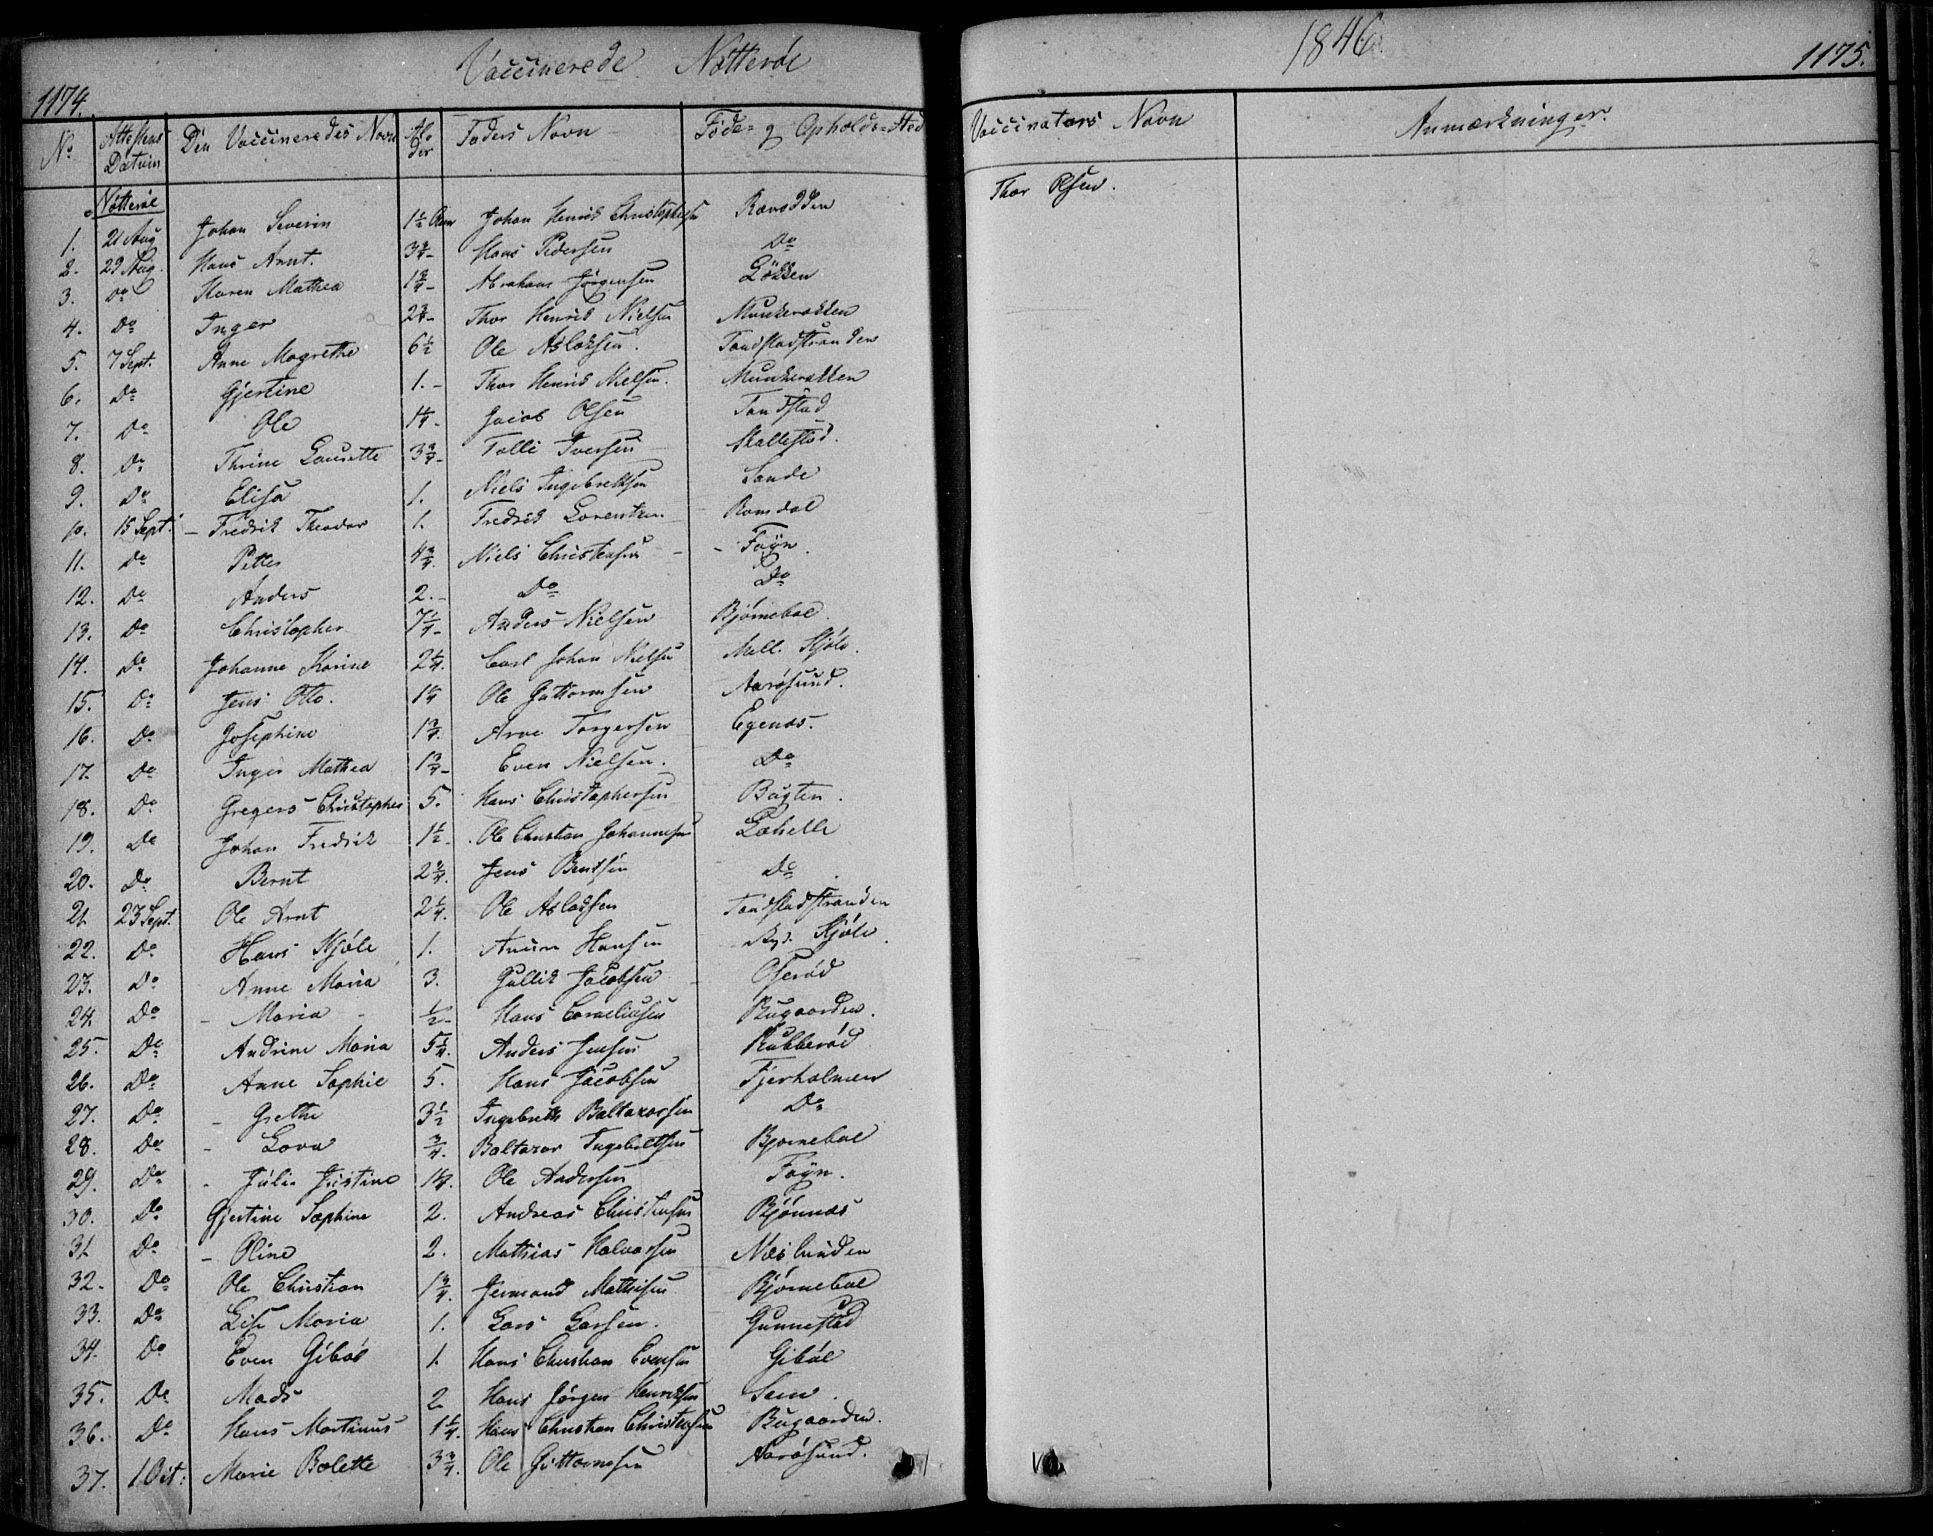 Vaccinerede Nøtterøe
1846
1174.
1175.
No Attestens Datum Den Vaccineredes Navn Alder Faders Navn Føde- og Opholds-Sted Vaccinators Navn Anmærkninger.
Nøtterøe
1. 21 Aug Johan Severin 1½ Aar Johan Henrik Christophersen Ravodden Thor Olsen.
2. 29 Aug. Hans Arnt. 3¾- Hans Pedersen Do
3. Do Karen Mathea 1¾- Abraham Jørgensen Løkken
4. Do Inger 2¾- Thor Henrik Nielsen Munkerekken
5. 7 Sept. Anne Magrethe 6½ Ole Aslaksen. Tandstadstranden
6. Do Gjertine 1.- Thor Henrik Nielsen. Munkerekken
7. Do Ole 1¼- Jacob Olsen Tandstad
8. Do Thrine Laurette 3¾- Tolle Iversen Skallestad.
9. Do Elisa 1. Niels Ingebretsen Sande
10. 15 Sept. - Fredrik Theodor 1. Fredrik Lorentzen Romdal
11. Do Petter 4¾. Niels Christensen - - Føyn.
12. Do Anders 2.- Do Do
13. Do Christopher 7¼- Anders Nielsen Bjørnebol
14. Do Johanne Karine 2¼. Carl Johan Nielsen Mell. Kjøle.
15. Do Jens Otto. 1¼ Ole Guttormsen Aarøsund.
16. Do Josephine 1¾. Arve Torgersen Egenæs.
17. Do Inger Mathea 1¾- Even Nielsen. Do
18. Do Gregers Christopher 5. Hans Christophersen Bugten.
19. Do Johan Fredrik 1½- Ole Christian Johannesen Lahelle
20. Do Bernt 2¾. Jens Bentsen Do
21 23 Sept. Ole Arnt 2¼. Ole Aslaksen Tandstadstranden
22. Do Hans Kjøle 1. Hansen Kjøle.
23. Do Anne Maria 3. Gullik Jacobsen - Oserød
24 Do - Maria - ½- Hans Corneliusen Bugaarden.
25. Do Andrine Maria 5¼. Anders Jensen Kubberød
26. Do Anne Sophie 5. Hans Jacobsen Fjerholmen
27. Do - Grethe 3½ Ingebreth Baltazarsen Do
28. Do - Lova ¾. Baltazar Ingebretsen Bjørnebol
29. Do - Julie Justine 1¼. Ole Andersen Føyn.
30. Do Gjertine Sophine 2. Andreas Christensen Bjønnæs
31 Do - Oline 2. Mathias Halvorsen Næslunden
32. Do Ole Christian 1¾. Jermand Mathisen Bjørnebol
33. Do Lise Maria 1. Lars Larsen. Gunnestad
34. Do Even Gibøe 1. Hans Christian Evensen Gibøe
35. Do Mads 2 Hans Jørgen Henriksen Sem.
36. Do Hans Martinus 1¼. Hans Christian Christensen Bugaarden.
37. 1 Oct: Marie Bolette 3¾. Ole Guttormsen Aarøsund.